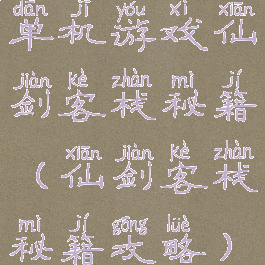 dān jī yóu xì xiān
单机游戏仙
jiàn kè zhàn mì jí
剑客栈秘籍
xiān jiàn kè zhàn
(仙剑客栈
mì jí gōng lüè
秘籍攻略)